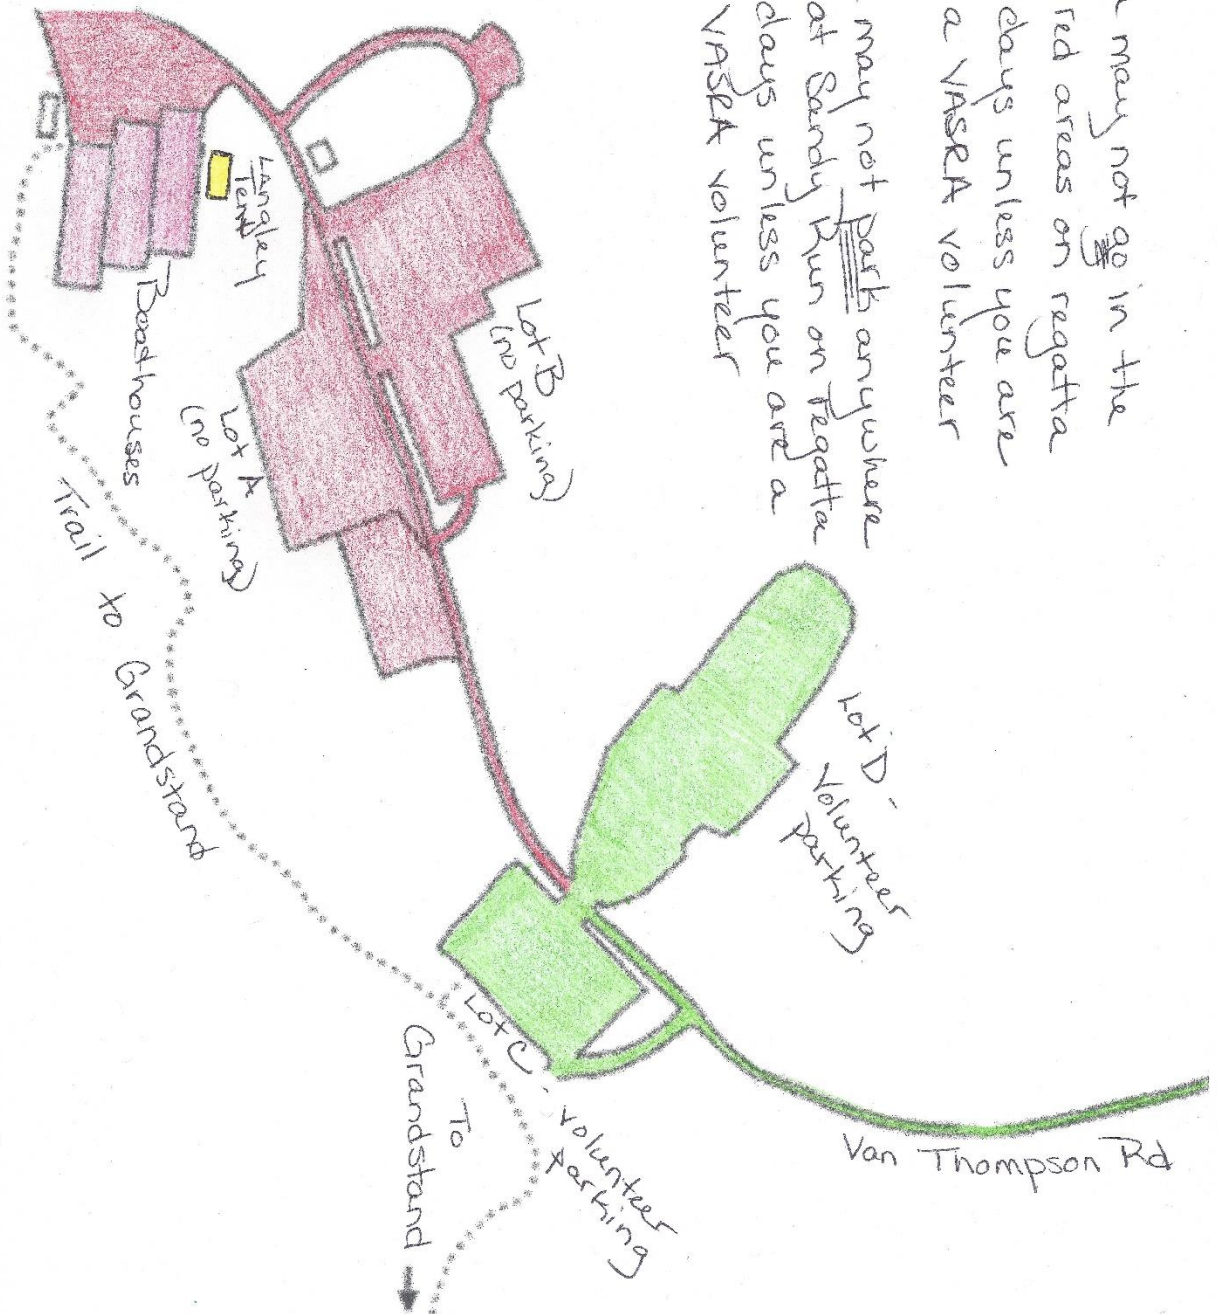 may not go in the
red areas on regatta
days unless you are
a VASRA volunteer
may not park anywhere
at Sandy Run on regatta
days unless you are a
VASRA volunteer
Lot D -
Volunteer
parking
Lot B
(no parking)
Langley
Tent
Lot A
(no parking)
Boathouses
Trail to Grandstand
Lot C - Volunteer
parking
To
Grandstand
Van Thompson Rd